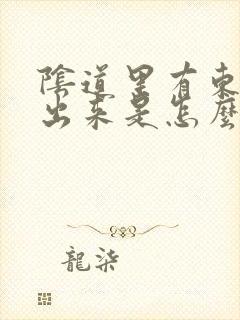 陰道里有東
出來是怎麼
龍柒